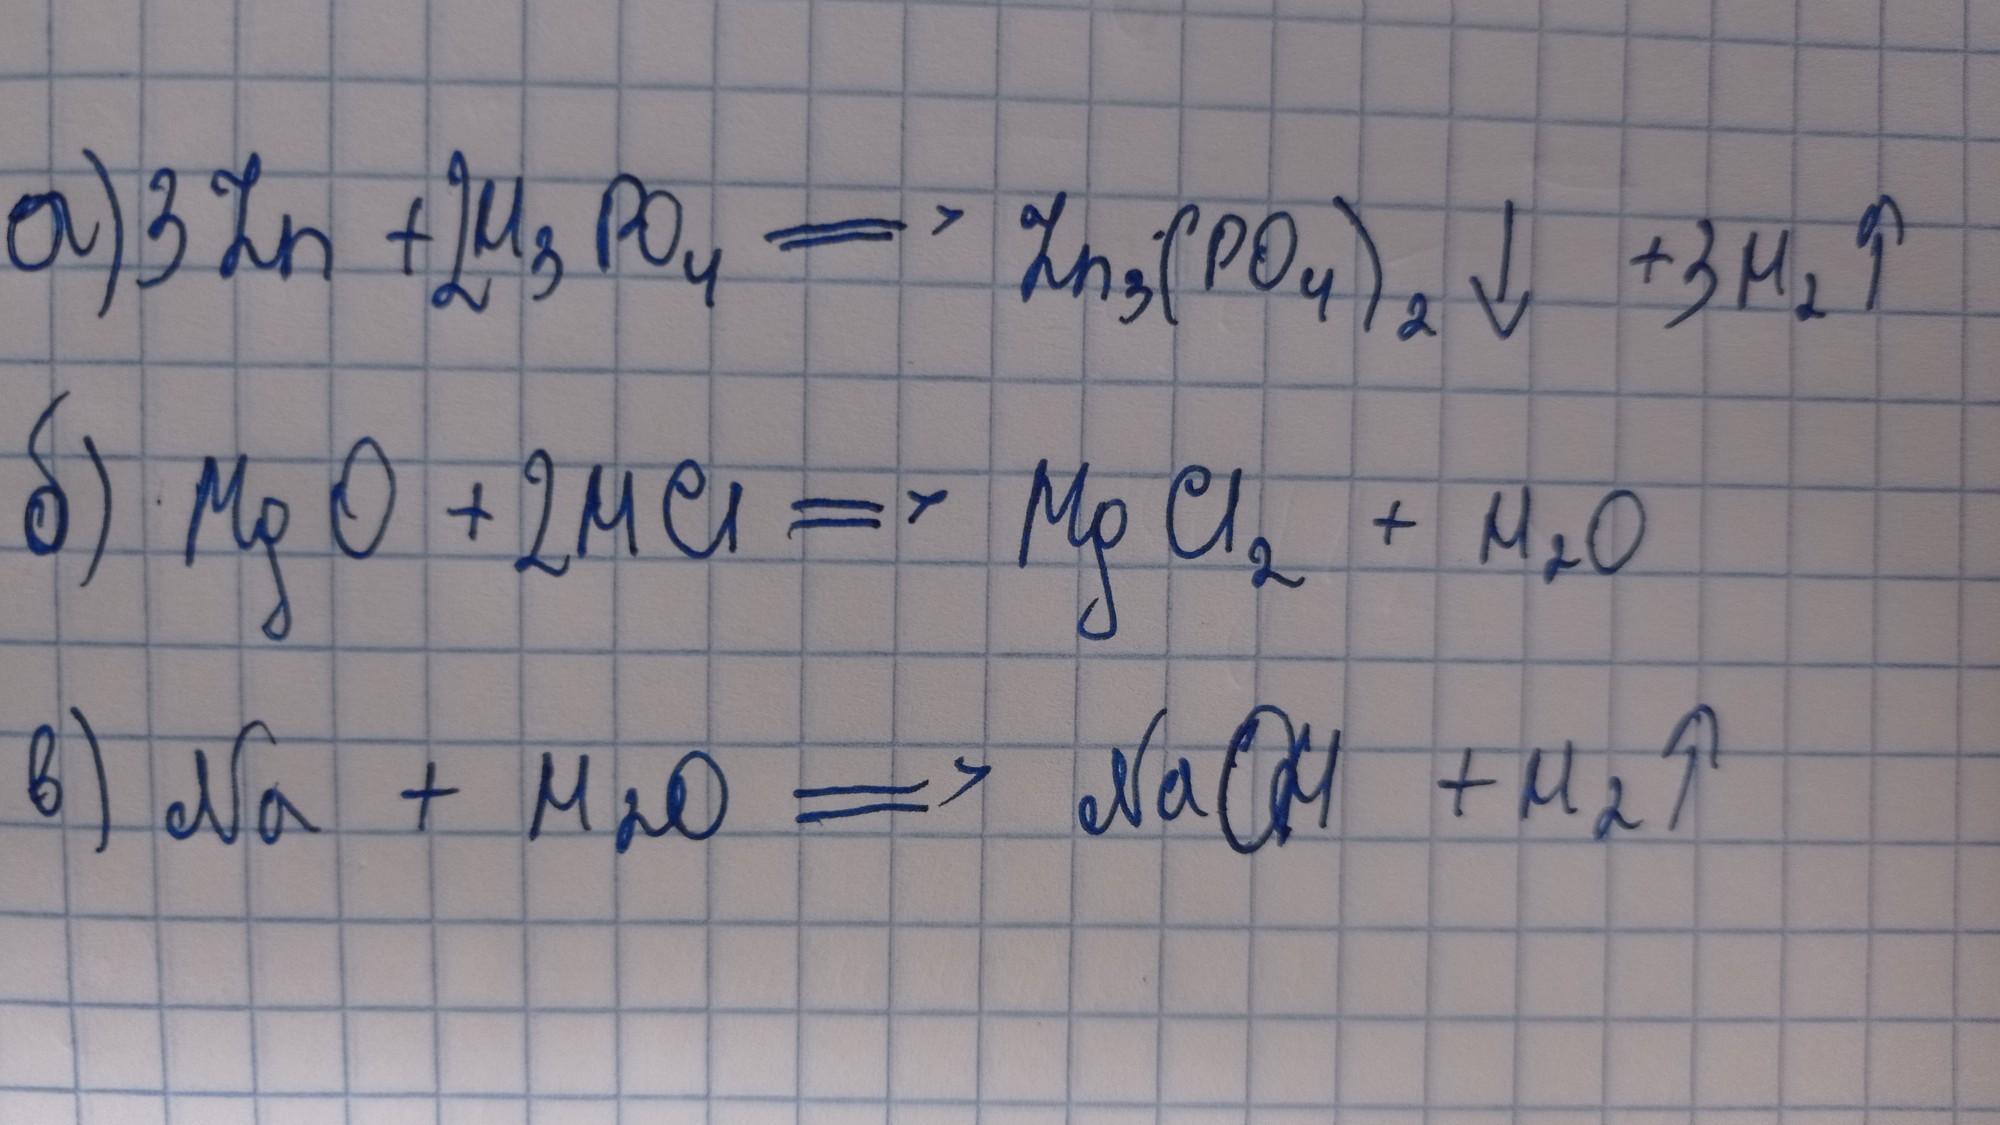 а) 3Zn + 2H₃PO₄ => Zn₃(PO₄)₂↓ + 3H₂↑
б) MgO + 2HCl => MgCl₂ + H₂O
в) Na + H₂O => NaOH + H₂↑